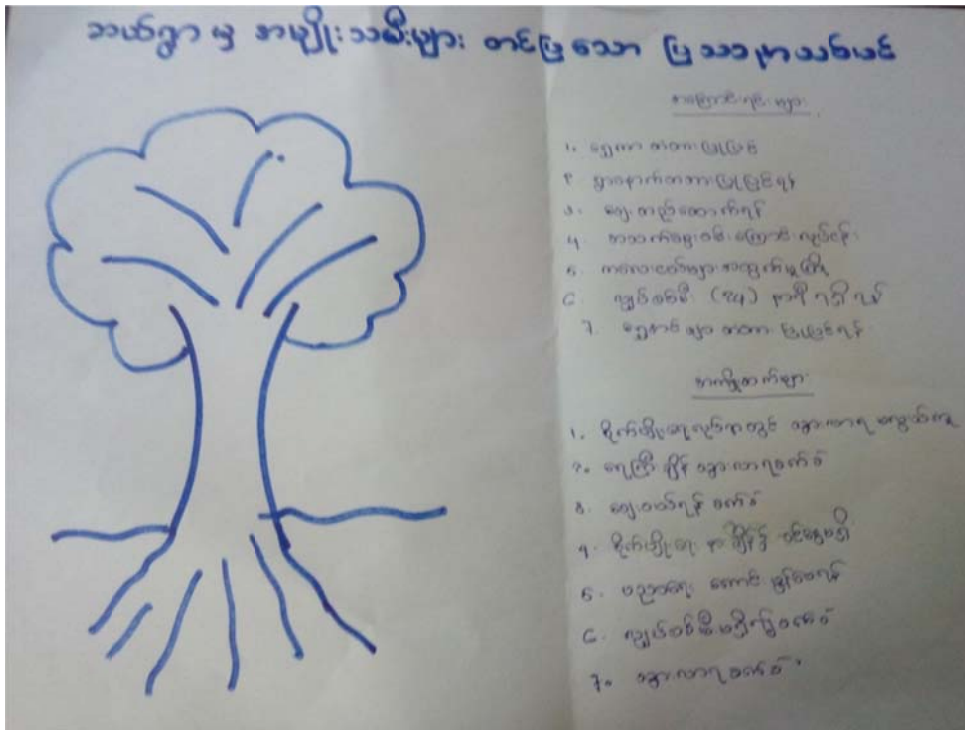 ဘယ်ရွာ မှ အမျိုးသမီးများ တင်ပြသော ပြဿနာသစ်ပင်
အကြောင်းရင်းများ
၁. ရွှေကာ တံတားပြုပြင်
၂ ရွာနောက်တံတားပြုပြင်ရန်
၃. ဈေး တည်ဆောက်ရန်
၄ အသက်မွေးဝမ်းကြောင်းလုပ်ငန်း
၅. ကလေးငယ်များအတွက်မူကြို
၆ လျှပ်စစ်မီး (၂၄) နာရီ ရရှိရန်
၇. တံတားပြုပြင်ရန်
အကျိုးဆက်များ
၁. စိုက်ပျိုးရေးလုပ်ရာတွင် သွားလာရ မလွယ်ကူ
၂. ရေကြီးချိန် သွားလာရခက်ခဲ
၃. ဈေးဝယ်ရန် ခက်ခဲ
၄. စိုက်ပျိုးရေး ဝင်ငွေမရှိ
၅. ပညာရေး ကောင်းမွန်စေရန်
၆. လျှပ်စစ်မီးမရှိ၍ခက်ခဲ
၇. သွားလာရခက်ခဲ